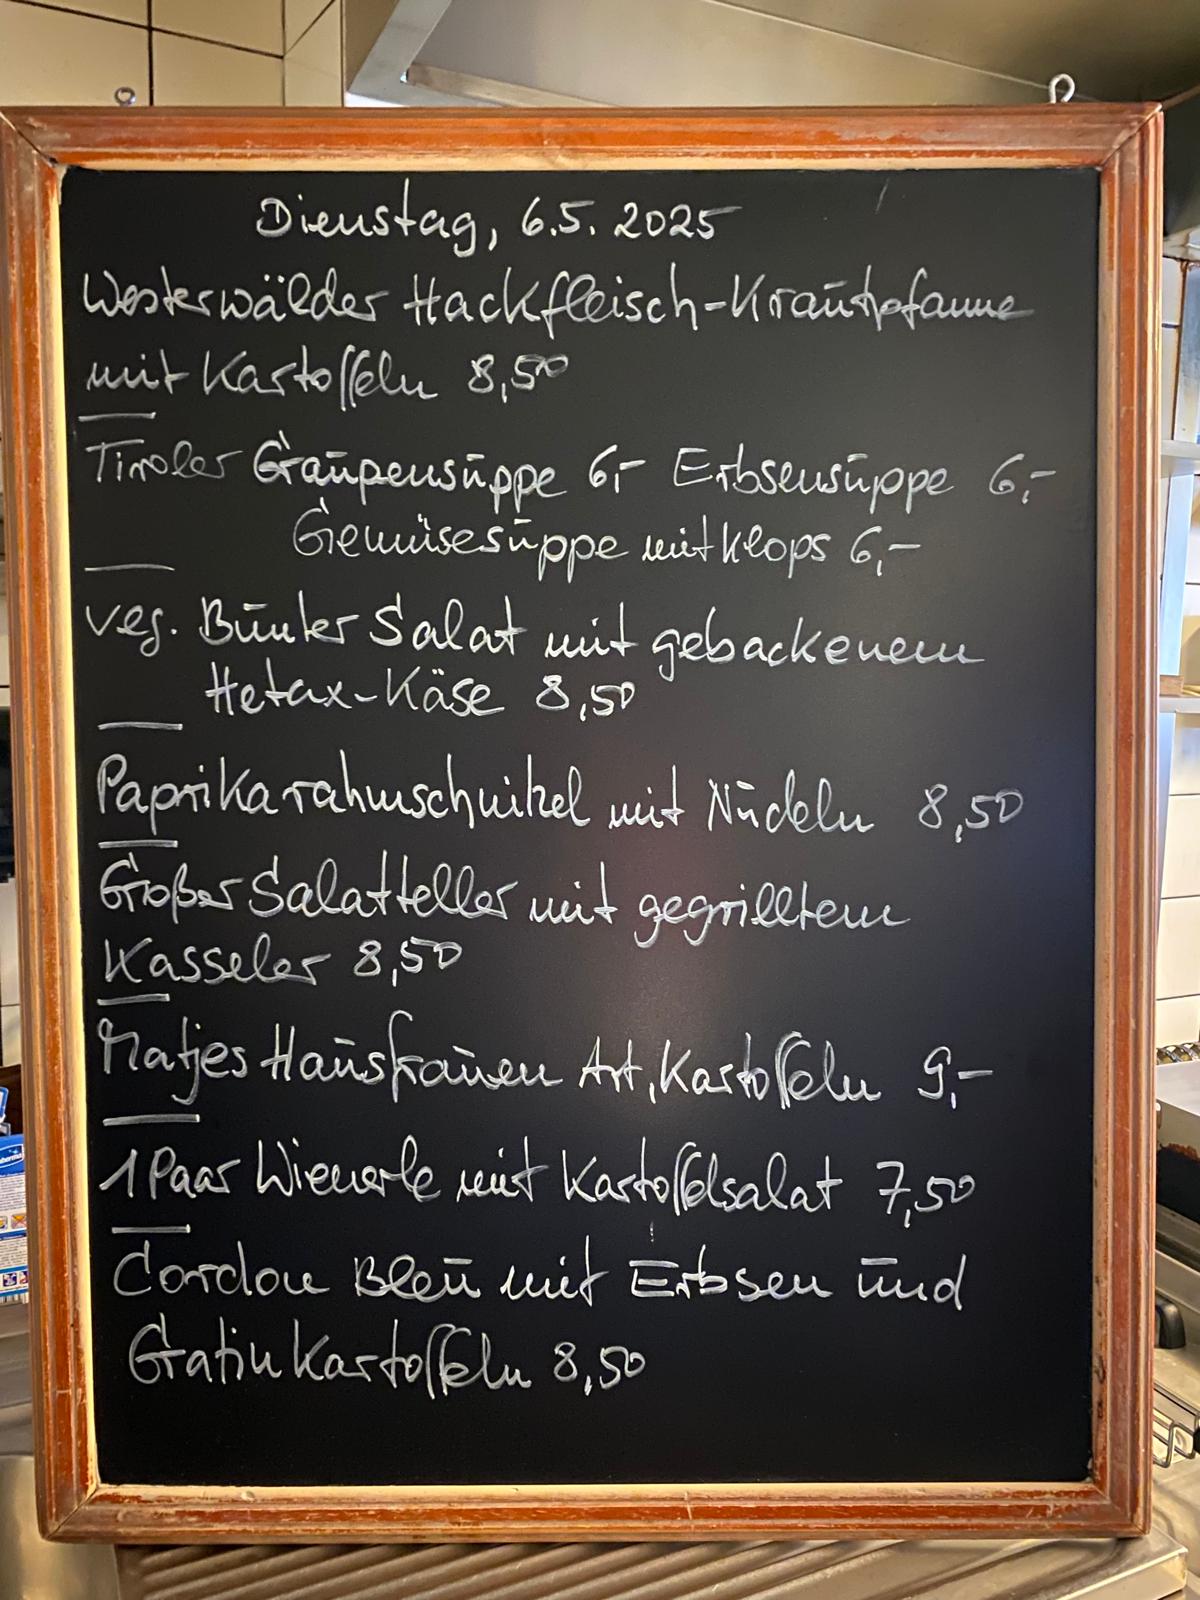 Dienstag, 6.5. 2025
Westerwälder Hackfleisch-Krautpfanne
mit Kartoffeln 8,50
Tiroler Graupensuppe 6,- Erbsensuppe 6,-
Gemüsesuppe mit Klops 6,-
veg. Bunter Salat mit gebackenem
Hetax-Käse 8,50
Paprikarahmschnitzel mit Nudeln 8,50
Großer Salatteller mit gegrilltem
Kasseler 8,50
Matjes Hausfrauen Art, Kartoffeln 9,-
1 Paar Wienerle mit Kartoffelsalat 7,50
Cordon Bleu mit Erbsen und
Gratinkartoffeln 8,50